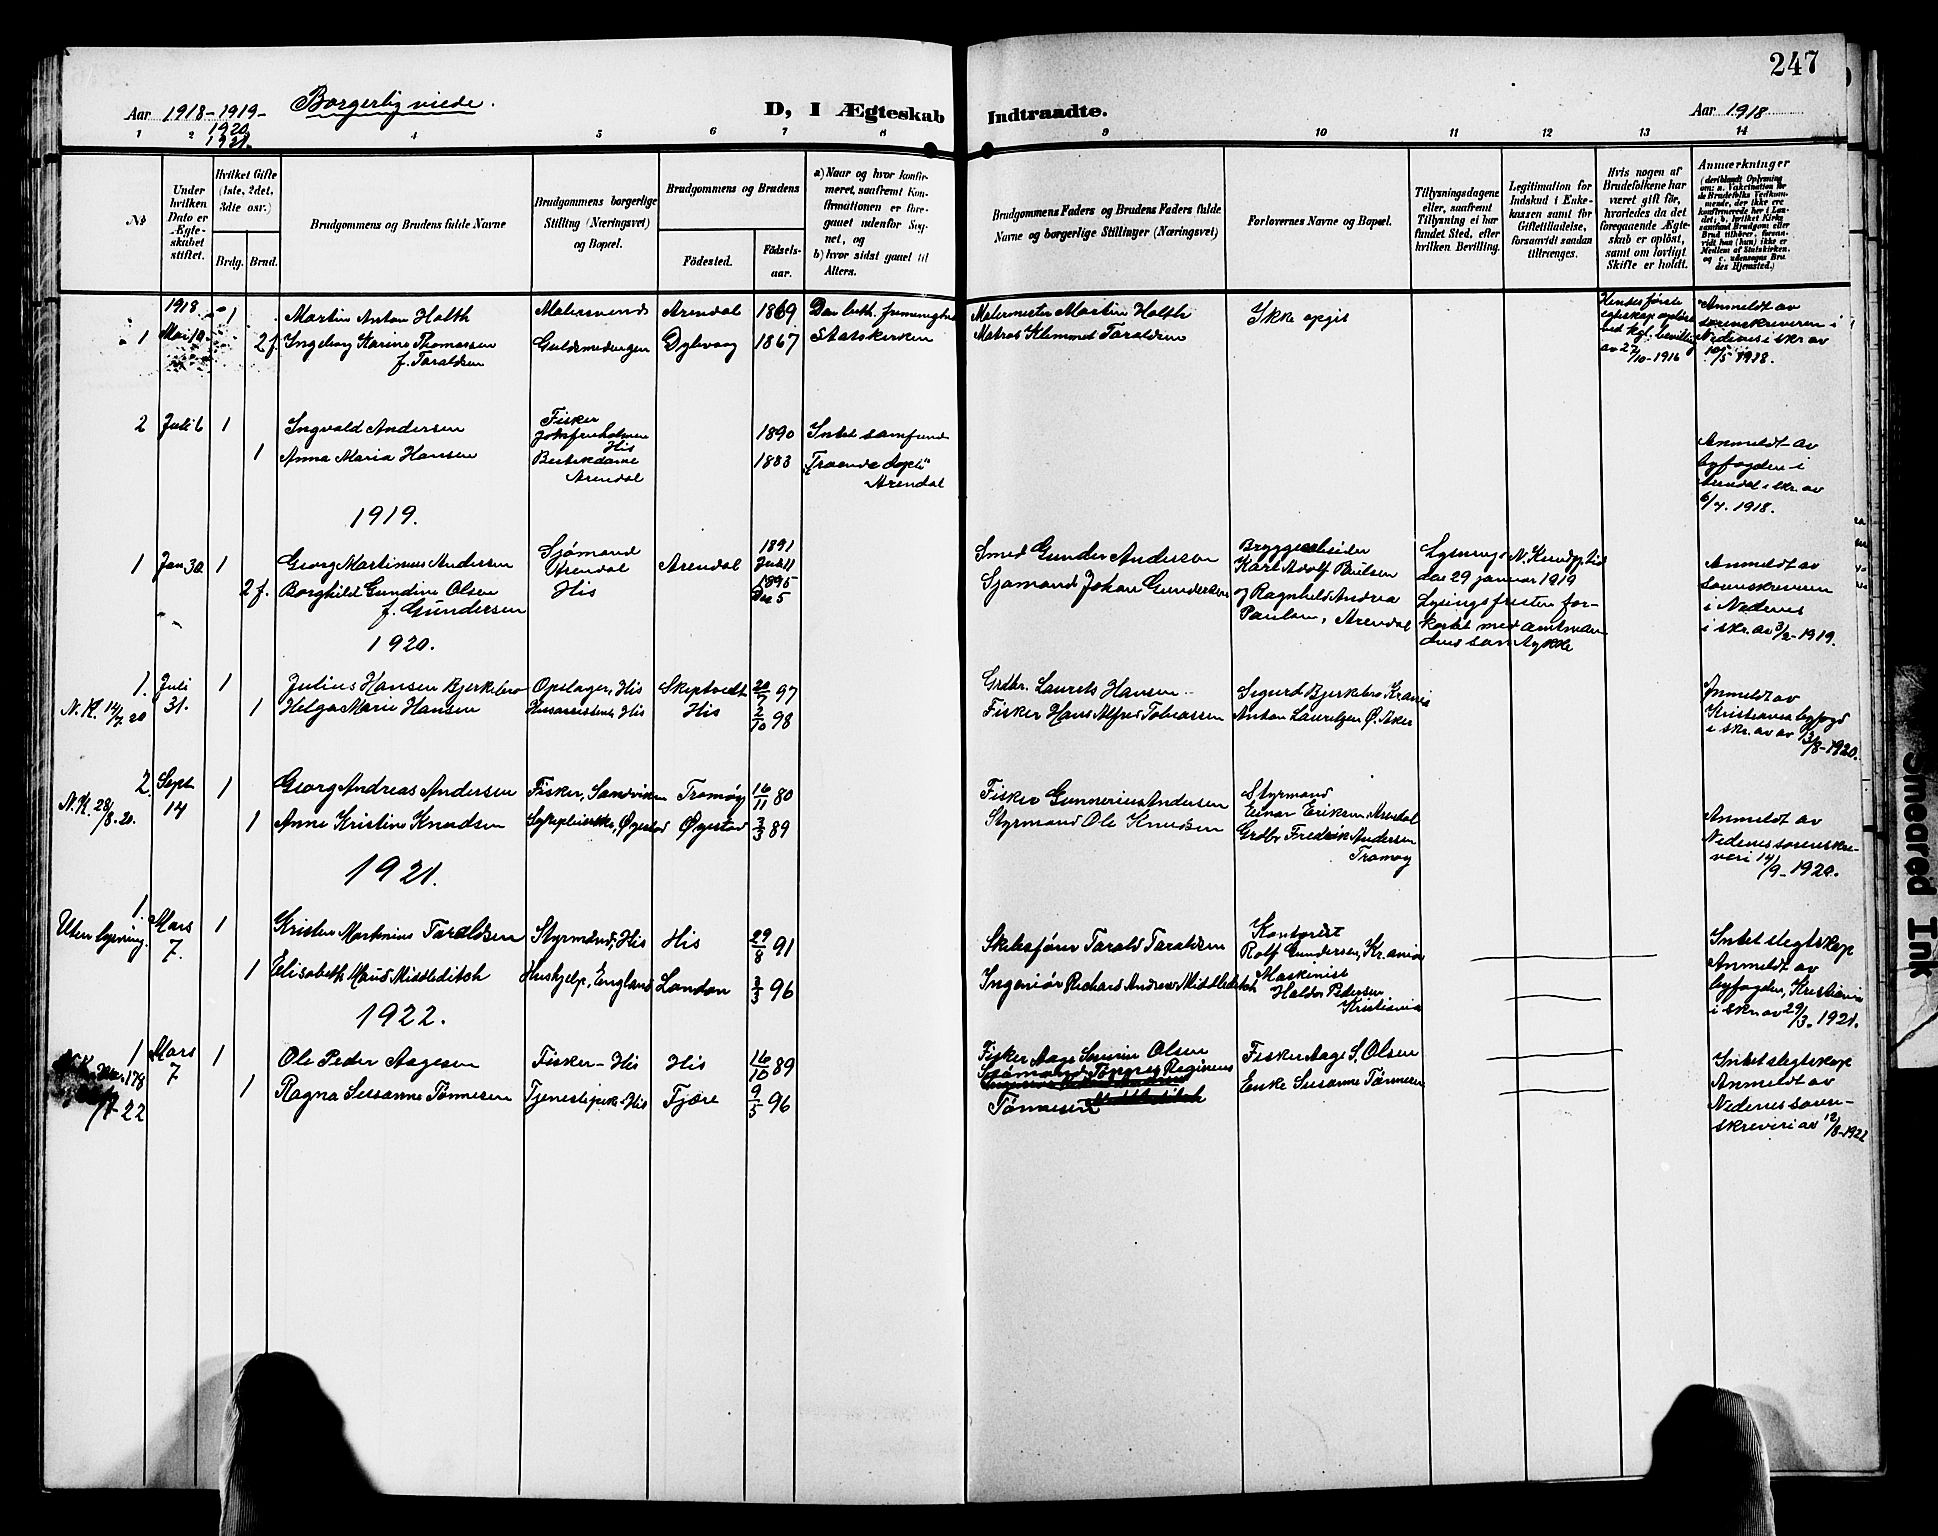 247
Aar 1918-1919-
1920
1921.
Borgerlig viede.
D, I Ægteskab Indtraadte.
Aar 1918
1 2 4 5 6 7 8 9 10 11 12 13 14
No
Under hvilken Dato er Ægteskabet stiftet.
Hvilket Gifte (1ste, 2det, 3dte osv.)
Brdg. Brud.
Brudgommens og Brudens fulde Navne
Brudgommens borgerlige Stilling (Næringsvei) og Bopæl.
Brudgommens og Brudens
Födested.
Födselsaar.
a) Naar og hvor konfirmeret, saafremt Konfirmationen er foregaaet udenfor Sognet, og
b) hvor sidst gaaet til Alters.
Brudgommens Faders og Brudens Faders fulde Navne og borgerlige Stillinger (Næringsvei)
Forlovernes Navne og Bopæl.
Tillysningsdagene eller, saafremt Tillysning ei har fundet Sted, efter hvilken Bevilling.
Legitimation for Indskud i Enkekassen samt for Giftetilladelse, forsaavidt saadan tiltrænges.
Hvis nogen af Brudefolkene har været gift før, hvorledes da det foregaaende Ægteskab er oplöst, samt om lovligt Skifte er holdt.
Anmærkninger
1918
1 Mai 10 1 Martin Anton Holth Malersvend Arendal 1869 Den luth. frimenighet Malermester Martin Holth Ikke opgit
2 f. Ingeborg Karine Thomassen Guldsmedengen Dybvaag 1867 Statskirken Matros Klemmet Taraldsen
f. Taraldsen
Hendes første egteskap opløst ved kgl. bevilling av 27/10-1916
Anmeldt av sorenskriveren i Nedenes i skr. av 10/5 1918.
2 Juli 6 1 Ingvald Andersen Fisker His 1890 Intet samfund
1 Anna Maria Hansen Arendal 1883 Arendal
Anmeldt av byfogden i Arendal i skr. av 6/7. 1918.
1919.
1 Jan 30 1 Georg Martinius Andersen Sjømand Arendal Arendal 1891 Juli 11 Smed Gunder Andersen
2 f. Borghild Gundine Olsen His 1895 Dec 5 Sjømand Johan Gundersen
f. Gundersen
Bryggearbeider Karl Adolf Paulsen og Ragnhild Andrea Paulsen, Arendal
Lysning i N. Kundgj.tid. den 29 januar 1919
Lysingsfristen forkortet med amtmandens samtykke
Anmeldt av sorenskriveren i Nedenes i skr. av 3/2-1919.
1920.
1. Juli 31. 1 Julius Hansen Bjerkebro Opslager, His Skiptvedt 20/7 97 Grdbr. Laurets Hansen Sigurd Bjerkebro Krania
N.K. 14/7. 20 1 Helga Marie Hansen His His 2/10 98 Fisker Hans Alfred Tobiassen Anton Lauritzen Ø. Aker
Anmeldt av Kristiania byfogd i skr. av av 13/8-1920.
2. Sept 14 1 Georg Andreas Andersen Fisker, Sandviken Tromøy 16/11 80 Fisker Gunnerius Andersen Styrmand Einar Eriksen Arendal
N.K. 28/8. 20. 1 Anne Kristine Knudsen Sykepleierske, Øyestad Øyestad 3/3 89 Styrmand Ole Knudsen Grdbr Fredrik Andersen Tromøy
Anmeldt av Nedenes sorenskriveri 14/9-1920.
1921.
1. Mars 7. 1 Kristen Martinius Taraldsen Styrmand, His His 29/8 91 Skibsfører Tarald Taraldsen Kontorist Rolf Gundersen, Krania
Uten lysning. 1 Elisabeth Maud Middleditch Hushjelp, England London 3/3 96 Ingeniør Richard Andrew Middleditch Maskinist Haldor Pedersen Kristiania
Intet slegtskap Anmeldt av byfogden, Kristiania i skr. av 29/3. 1921.
1922.
1 Mars 7 1 Ole Peder Aagesen Fisker - His His 16/10 89 Fisker Aage Severin Olsen Fisker Aage S. Olsen
1 Ragna Susanne Tønnesen Tjenestepike - His Fjære 9/5 96 Sjømand Tønnes Reginius Tønnesen Enke Susanne Tønnesen
Intet slegtskap Anmeldt av Nedenes sorenskriveri av 12/8-1922
Smeared Ink